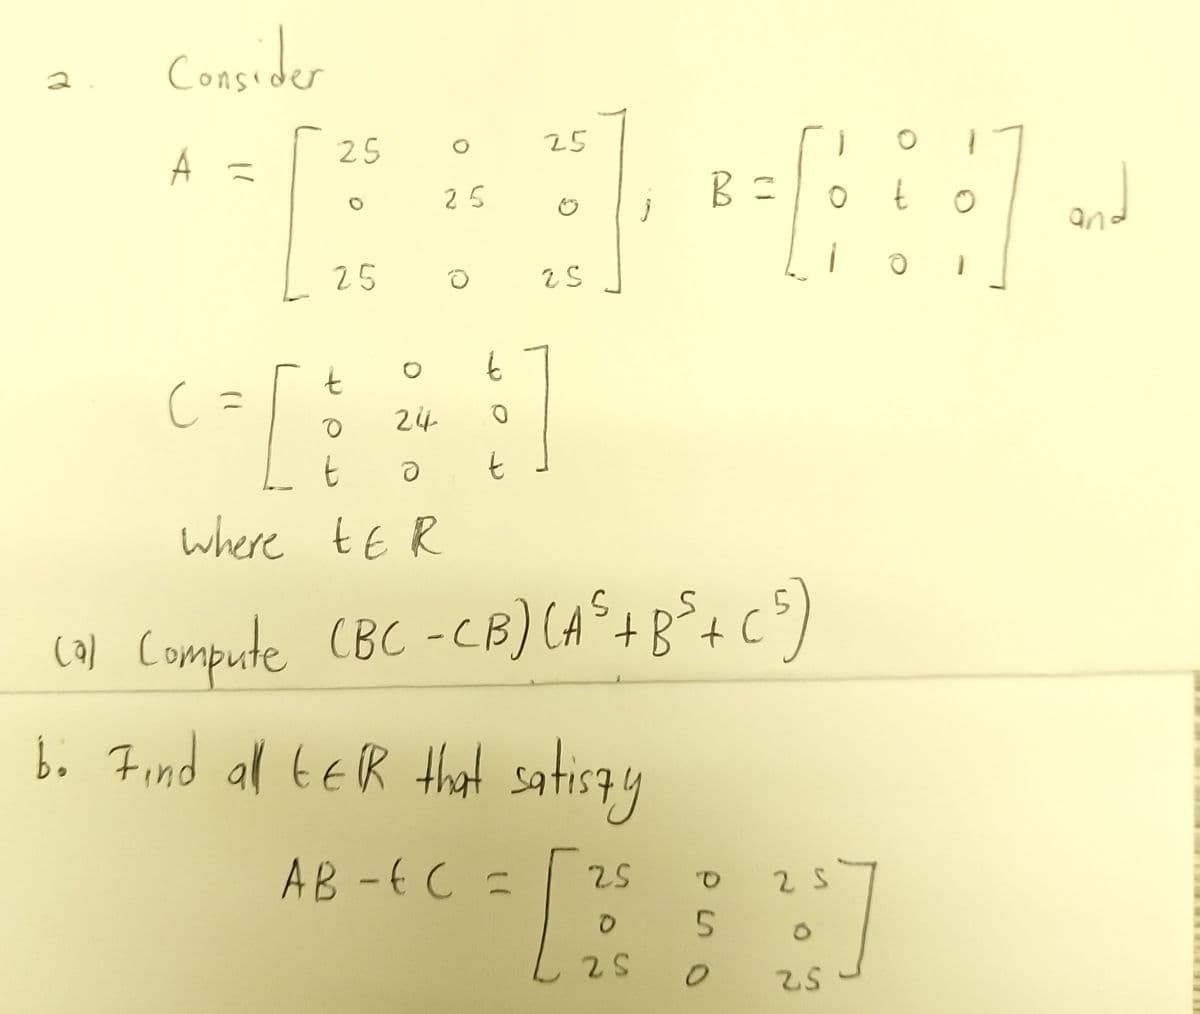 2. Consider
A = [ 25 0 25 ] ; B = [ 1 0 1 ] and
0 25 0 0 t 0
25 0 25 1 0 1
C = [ t 0 t ]
0 24 0
t 0 t
where t ∈ R
(a) Compute (BC - CB) (A⁵ + B⁵ + C⁵)
b. Find all t ∈ ℝ that satisfy
AB - t C = [ 25 0 25 ]
0 5 0
25 0 25